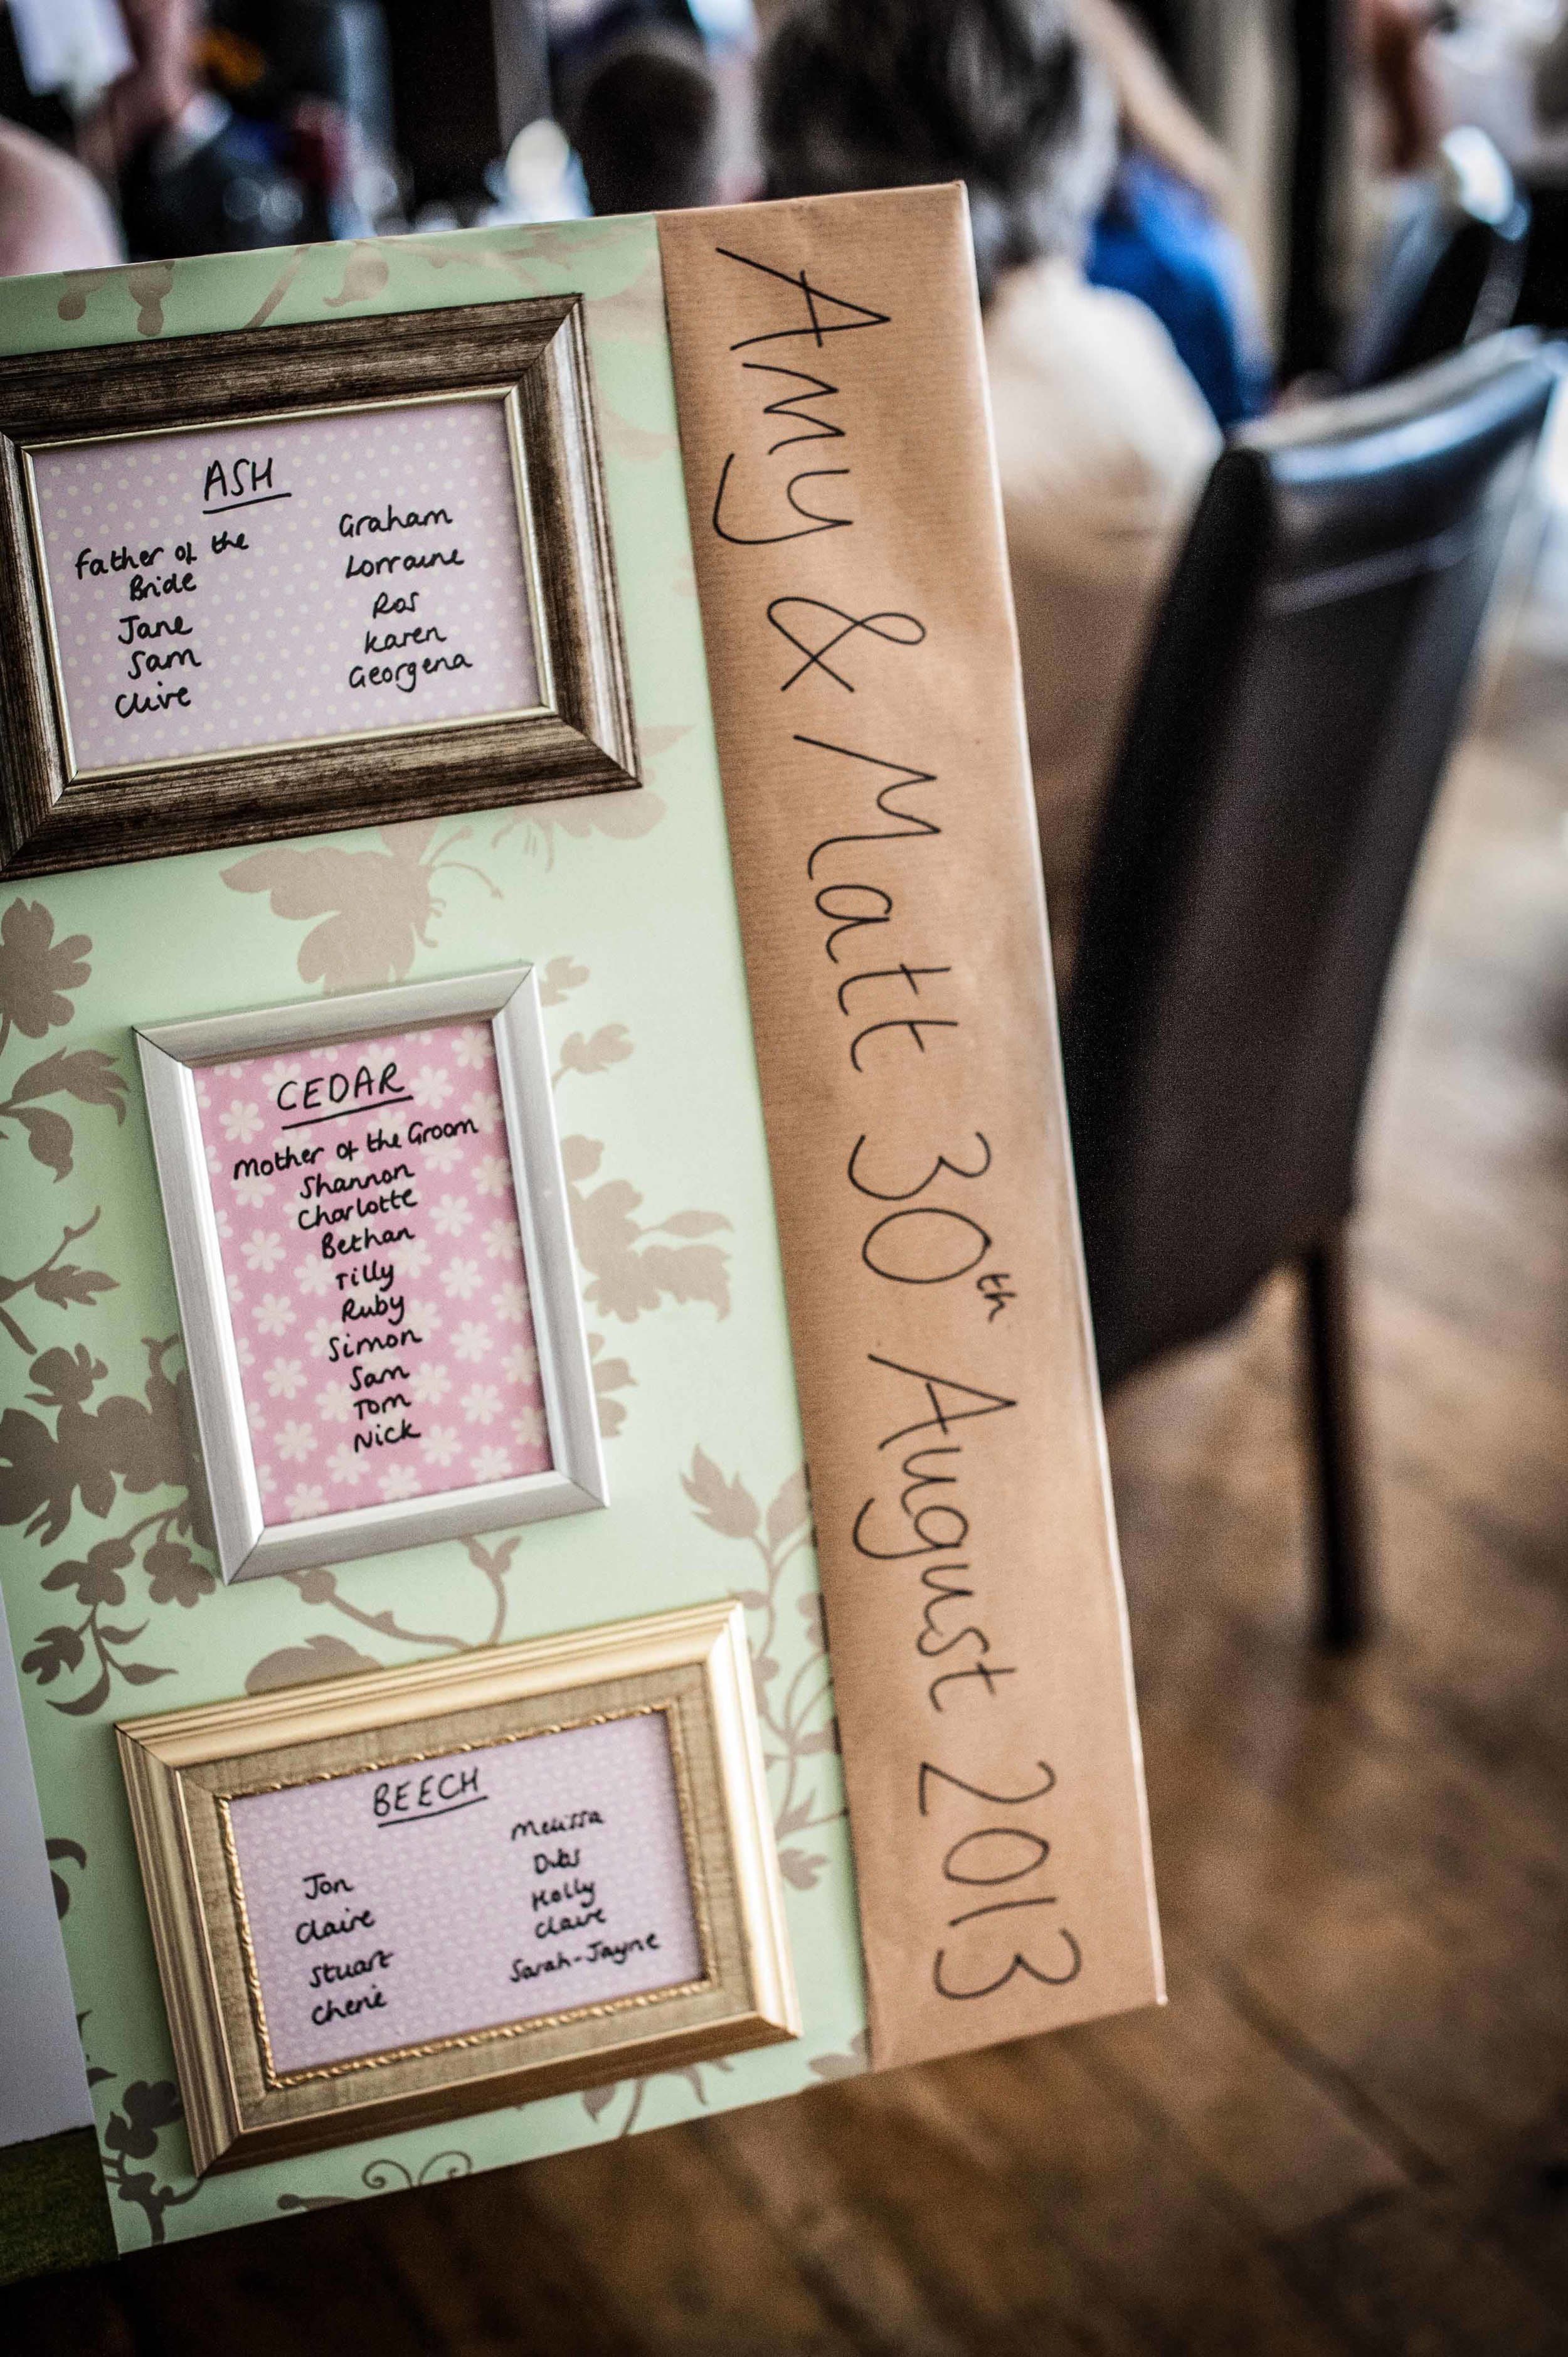 ASH
Father of the
Bride
Jane
Sam
Clive
Graham
Lorraine
Ros
Karen
Georgena
CEDAR
Mother of the Groom
Shannon
Charlotte
Bethan
Tilly
Ruby
Simon
Sam
Tom
Nick
BEECH
Jon
Claire
Stuart
Cherie
Melissa
Holly
Claire
Sarah-Jayne
Amy & Matt 30th August 2013